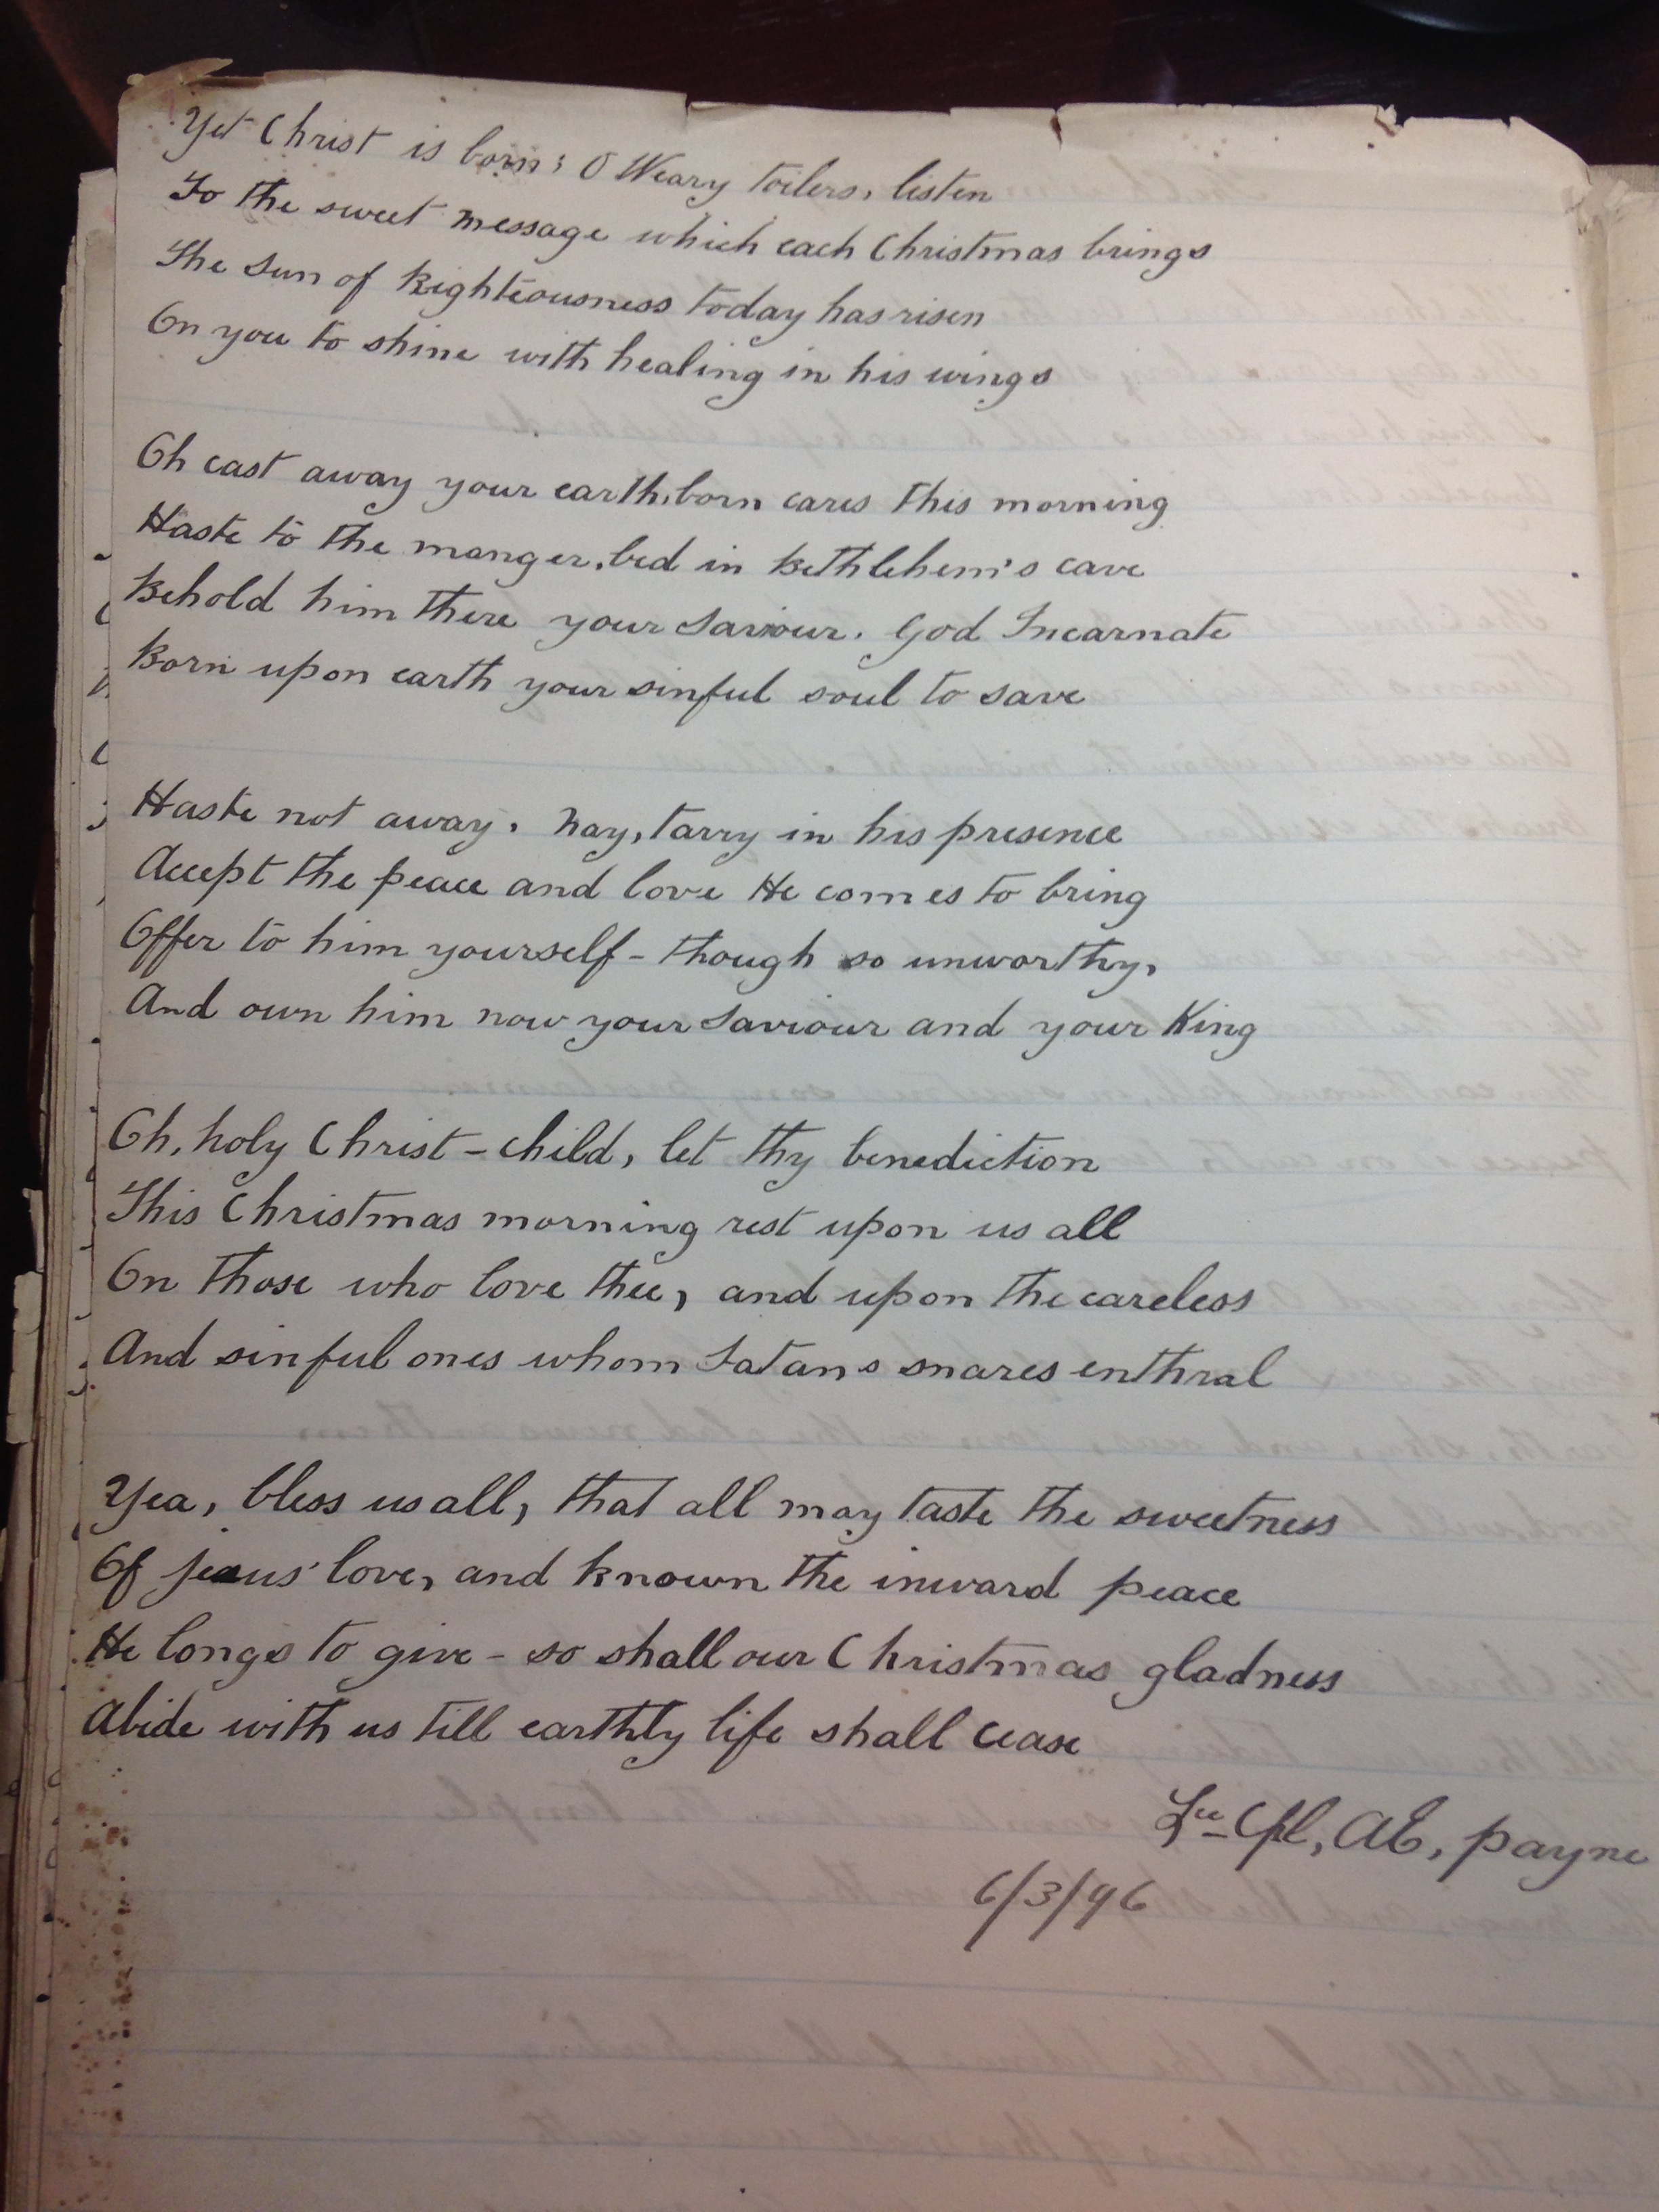 Yet Christ is born; O Weary toilers, listen
To the sweet message which each Christmas brings
The Sun of Righteousness today has risen
On you to shine with healing in his wings
Oh cast away your earth-born cares this morning
Haste to the manger-bed in Bethlehem's cave
Behold him there your Saviour. God Incarnate
Born upon earth your sinful soul to save
Haste not away, Nay, tarry in his presence
Accept the peace and love He comes to bring
Offer to him yourself - though so unworthy,
And own him now your Saviour and your King
Oh, holy Christ - child, let thy benediction
This Christmas morning rest upon us all
On those who love thee, and upon the careless
And sinful ones whom Satans snares enthral
Yea, bless us all, that all may taste the sweetness
Of Jesus' love, and known the inward peace
He longs to give - so shall our Christmas gladness
Abide with us till earthly life shall cease
Lce Cpl, AE, Payne
6/3/96